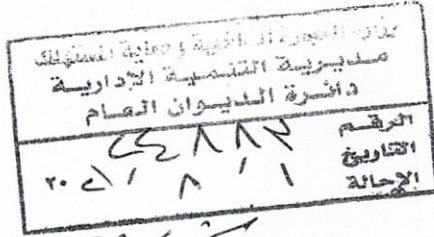 وزارة التجارة الداخلية وحماية المستهلك
مديرية التنمية الإدارية
دائرة الديوان العام
الرقم
التاريخ ١ / ٨ / ٢٠
الإحالة